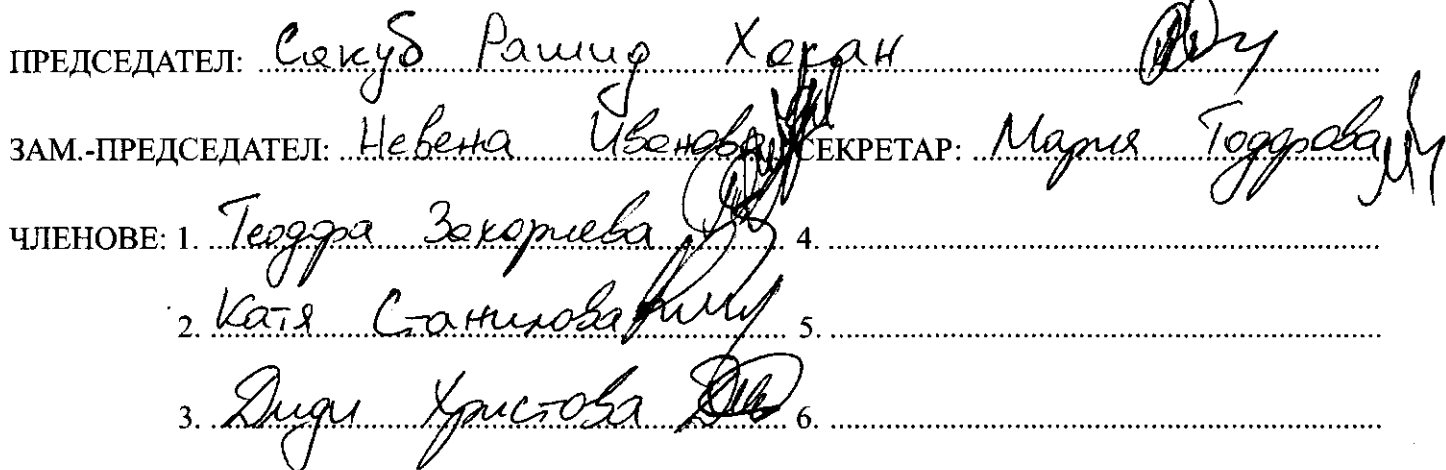 ПРЕДСЕДАТЕЛ: Сакуб Рашид Хакан
ЗАМ.-ПРЕДСЕДАТЕЛ: Невена Иванова СЕКРЕТАР: Мария Тодорова
ЧЛЕНОВЕ: 1. Теодора Захариева 4.
2. Катя Станилова 5.
3. Диди Христова 6.